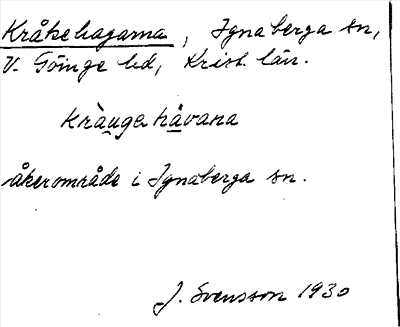 Kråkehagarna, Ignaberga sn,
V. Göinge hd, Krist. län.
kràu̯ga hå̱vana
åkerområde i Ignaberga sn.
J. Svensson 1930